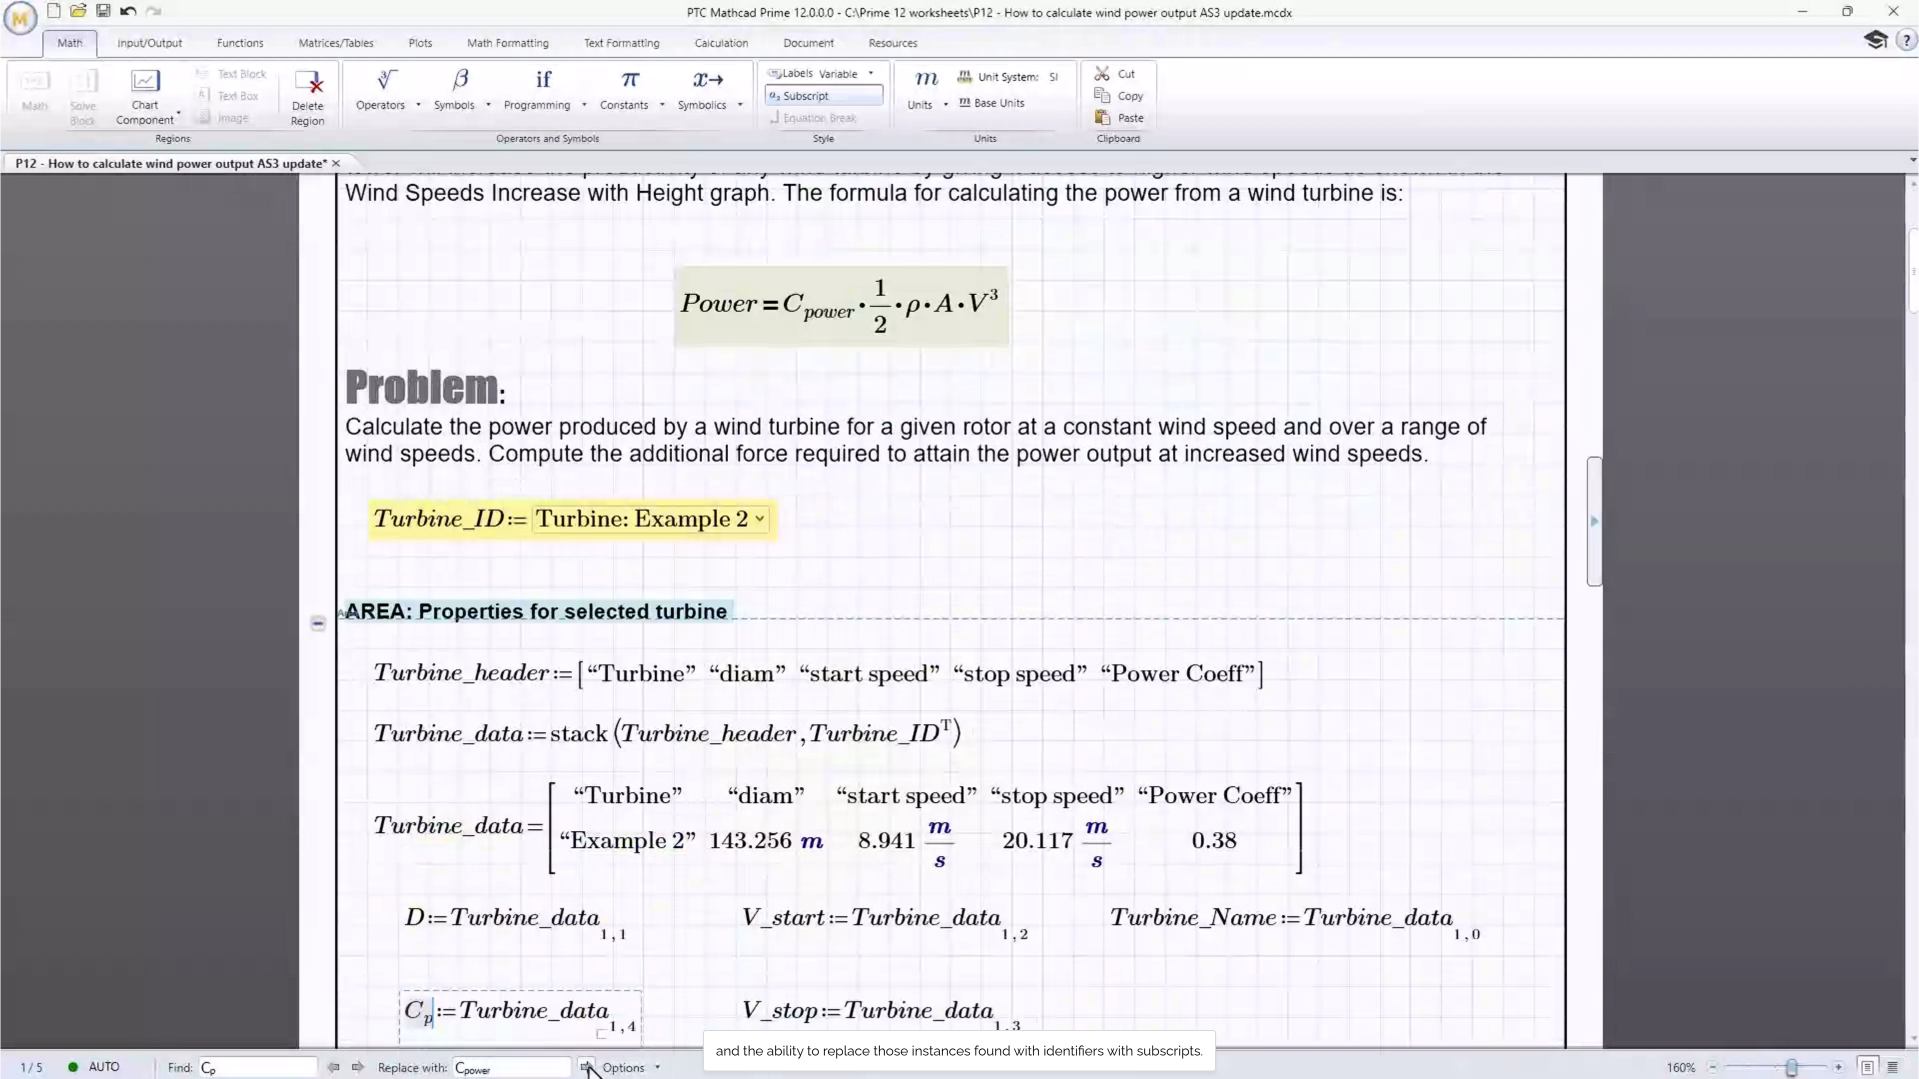 PTC Mathcad Prime 12.0.0.0 - C:\Prime 12 worksheets\P12 - How to calculate wind power output AS3 update.mcdx
Math Input/Output Functions Matrices/Tables Plots Math Formatting Text Formatting Calculation Document Resources
Math Solve Block Chart Component Text Block Text Box Image Delete Region
Operators Symbols Programming Constants Symbolics
Labels Variable
Subscript
Equation Break
Units Unit System: SI
Base Units
Cut
Copy
Paste
Regions Operators and Symbols Style Units Clipboard
P12 - How to calculate wind power output AS3 update*
Wind Speeds Increase with Height graph. The formula for calculating the power from a wind turbine is:
Power = C_power · 1/2 · ρ · A · V³
Problem:
Calculate the power produced by a wind turbine for a given rotor at a constant wind speed and over a range of
wind speeds. Compute the additional force required to attain the power output at increased wind speeds.
Turbine_ID := Turbine: Example 2
AREA: Properties for selected turbine
Turbine_header := [“Turbine” “diam” “start speed” “stop speed” “Power Coeff”]
Turbine_data := stack (Turbine_header, Turbine_IDᵀ)
Turbine_data = [“Turbine” “diam” “start speed” “stop speed” “Power Coeff”
“Example 2” 143.256 m 8.941 m/s 20.117 m/s 0.38]
D := Turbine_data 1,1 V_start := Turbine_data 1,2 Turbine_Name := Turbine_data 1,0
Cp := Turbine_data 1,4 V_stop := Turbine_data 1,3
and the ability to replace those instances found with identifiers with subscripts.
1 / 5 AUTO Find: Cp Replace with: Cpower Options 160%